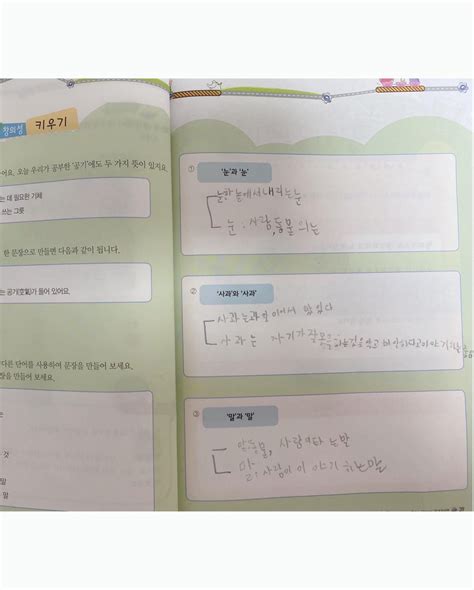 창의성 키우기
어요. 오늘 우리가 공부한 '공기'에도 두 가지 뜻이 있지요.
는 데 필요한 기체
쓰는 그릇
한 문장으로 만들면 다음과 같이 됩니다.
는 공기(호氣)가 들어 있어요.
다른 단어를 사용하여 문장을 만들어 보세요.
장을 만들어 보세요.
는
것
말
말
① '눈'과 '눈'
눈 하늘에서 내리는 눈
눈. 사람, 동물의 눈
② '사과'와 '사과'
사과는 과일이어서 맛있다
사과는 자기가 잘못 하는것을 알고 미안하다고 이야기
③ '말'과 '말'
말 동물, 사람이 타는 말
말, 사람이 이야기 하는 말